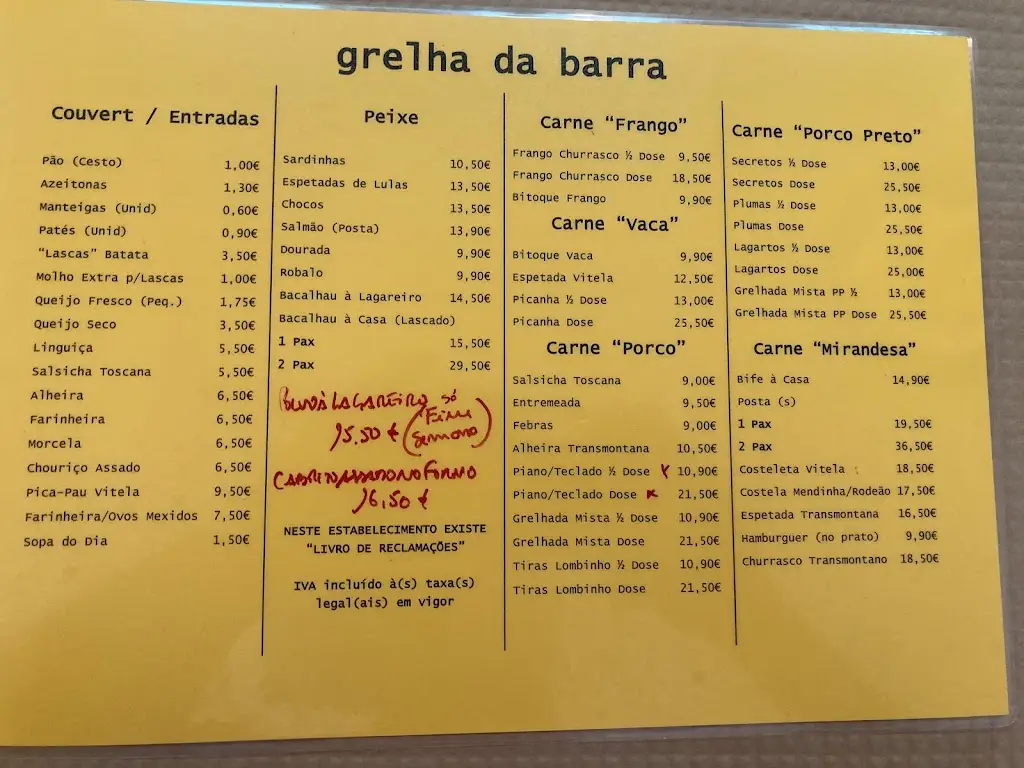 grelha da barra
Couvert / Entradas
Pão (Cesto) 1,00€
Azeitonas 1,30€
Manteigas (Unid) 0,60€
Patés (Unid) 0,90€
"Lascas" Batata 3,50€
Molho Extra p/Lascas 1,00€
Queijo Fresco (Peq.) 1,75€
Queijo Seco 3,50€
Linguiça 5,50€
Salsicha Toscana 5,50€
Alheira 6,50€
Farinheira 6,50€
Morcela 6,50€
Chouriço Assado 6,50€
Pica-Pau Vitela 9,50€
Farinheira/Ovos Mexidos 7,50€
Sopa do Dia 1,50€
Peixe
Sardinhas 10,50€
Espetadas de Lulas 13,50€
Chocos 13,50€
Salmão (Posta) 13,90€
Dourada 9,90€
Robalo 9,90€
Bacalhau à Lagareiro 14,50€
Bacalhau à Casa (Lascado)
1 Pax 15,50€
2 Pax 29,50€
LAGAREIRO só
15.50 €
16,50 €
NESTE ESTABELECIMENTO EXISTE
"LIVRO DE RECLAMAÇÕES"
IVA incluído à(s) taxa(s)
legal(ais) em vigor
Carne "Frango"
Frango Churrasco ½ Dose 9,50€
Frango Churrasco Dose 18,50€
Bitoque Frango 9,90€
Carne "Vaca"
Bitoque Vaca 9,90€
Espetada Vitela 12,50€
Picanha ½ Dose 13,00€
Picanha Dose 25,50€
Carne "Porco"
Salsicha Toscana 9,00€
Entremeada 9,50€
Febras 9,00€
Alheira Transmontana 10,50€
Piano/Teclado ½ Dose 10,90€
Piano/Teclado Dose 21,50€
Grelhada Mista ½ Dose 10,90€
Grelhada Mista Dose 21,50€
Tiras Lombinho ½ Dose 10,90€
Tiras Lombinho Dose 21,50€
Carne "Porco Preto"
Secretos ½ Dose 13,00€
Secretos Dose 25,50€
Plumas ½ Dose 13,00€
Plumas Dose 25,50€
Lagartos ½ Dose 13,00€
Lagartos Dose 25,00€
Grelhada Mista PP ½ 13,00€
Grelhada Mista PP Dose 25,50€
Carne "Mirandesa"
Bife à Casa 14,90€
Posta (s)
1 Pax 19,50€
2 Pax 36,50€
Costeleta Vitela 18,50€
Costela Mendinha/Rodeão 17,50€
Espetada Transmontana 16,50€
Hamburguer (no prato) 9,90€
Churrasco Transmontano 18,50€